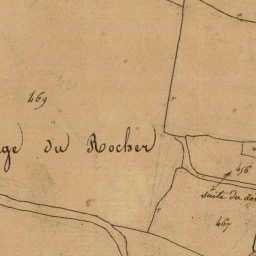 469
ge du Rocher
416
suite du
467